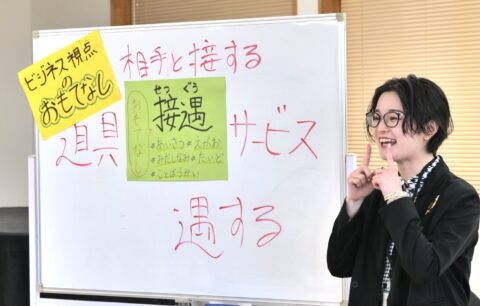 ビジネス視点
の
おもてなし
相手と接する
道具
せつ ぐう
接遇
おもてなし
・あいさつ・えがお
・みだしなみ・たいど
・ことばづかい
サービス
遇する